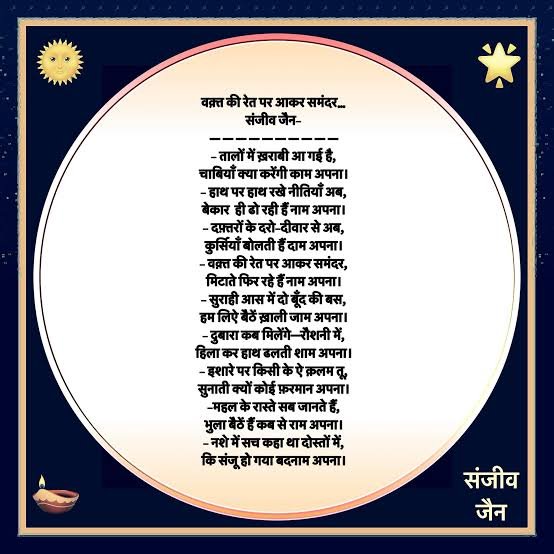 वक़्त की रेत पर आकर समंदर...
संजीव जैन–
– – – – – – – – – – –
– तालों में ख़राबी आ गई है,
चाबियाँ क्या करेंगी काम अपना।
– हाथ पर हाथ रखे नीतियाँ अब,
बेकार ही ढो रही हैं नाम अपना।
– दफ़्तरों के दरो-दीवार से अब,
कुर्सियाँ बोलती हैं दाम अपना।
– वक़्त की रेत पर आकर समंदर,
मिटाते फिर रहे हैं नाम अपना।
– सुराही आस में दो बूँद की बस,
हम लिऐ बैठें ख़ाली जाम अपना।
– दुबारा कब मिलेंगे–रौशनी में,
हिला कर हाथ ढलती शाम अपना।
– इशारे पर किसी के ऐ क़लम तू,
सुनाती क्यों कोई फ़रमान अपना।
–महल के रास्ते सब जानते हैं,
भुला बैठें हैं कब से राम अपना।
– नशे में सच कहा था दोस्तों में,
कि संजू हो गया बदनाम अपना।
संजीव
जैन